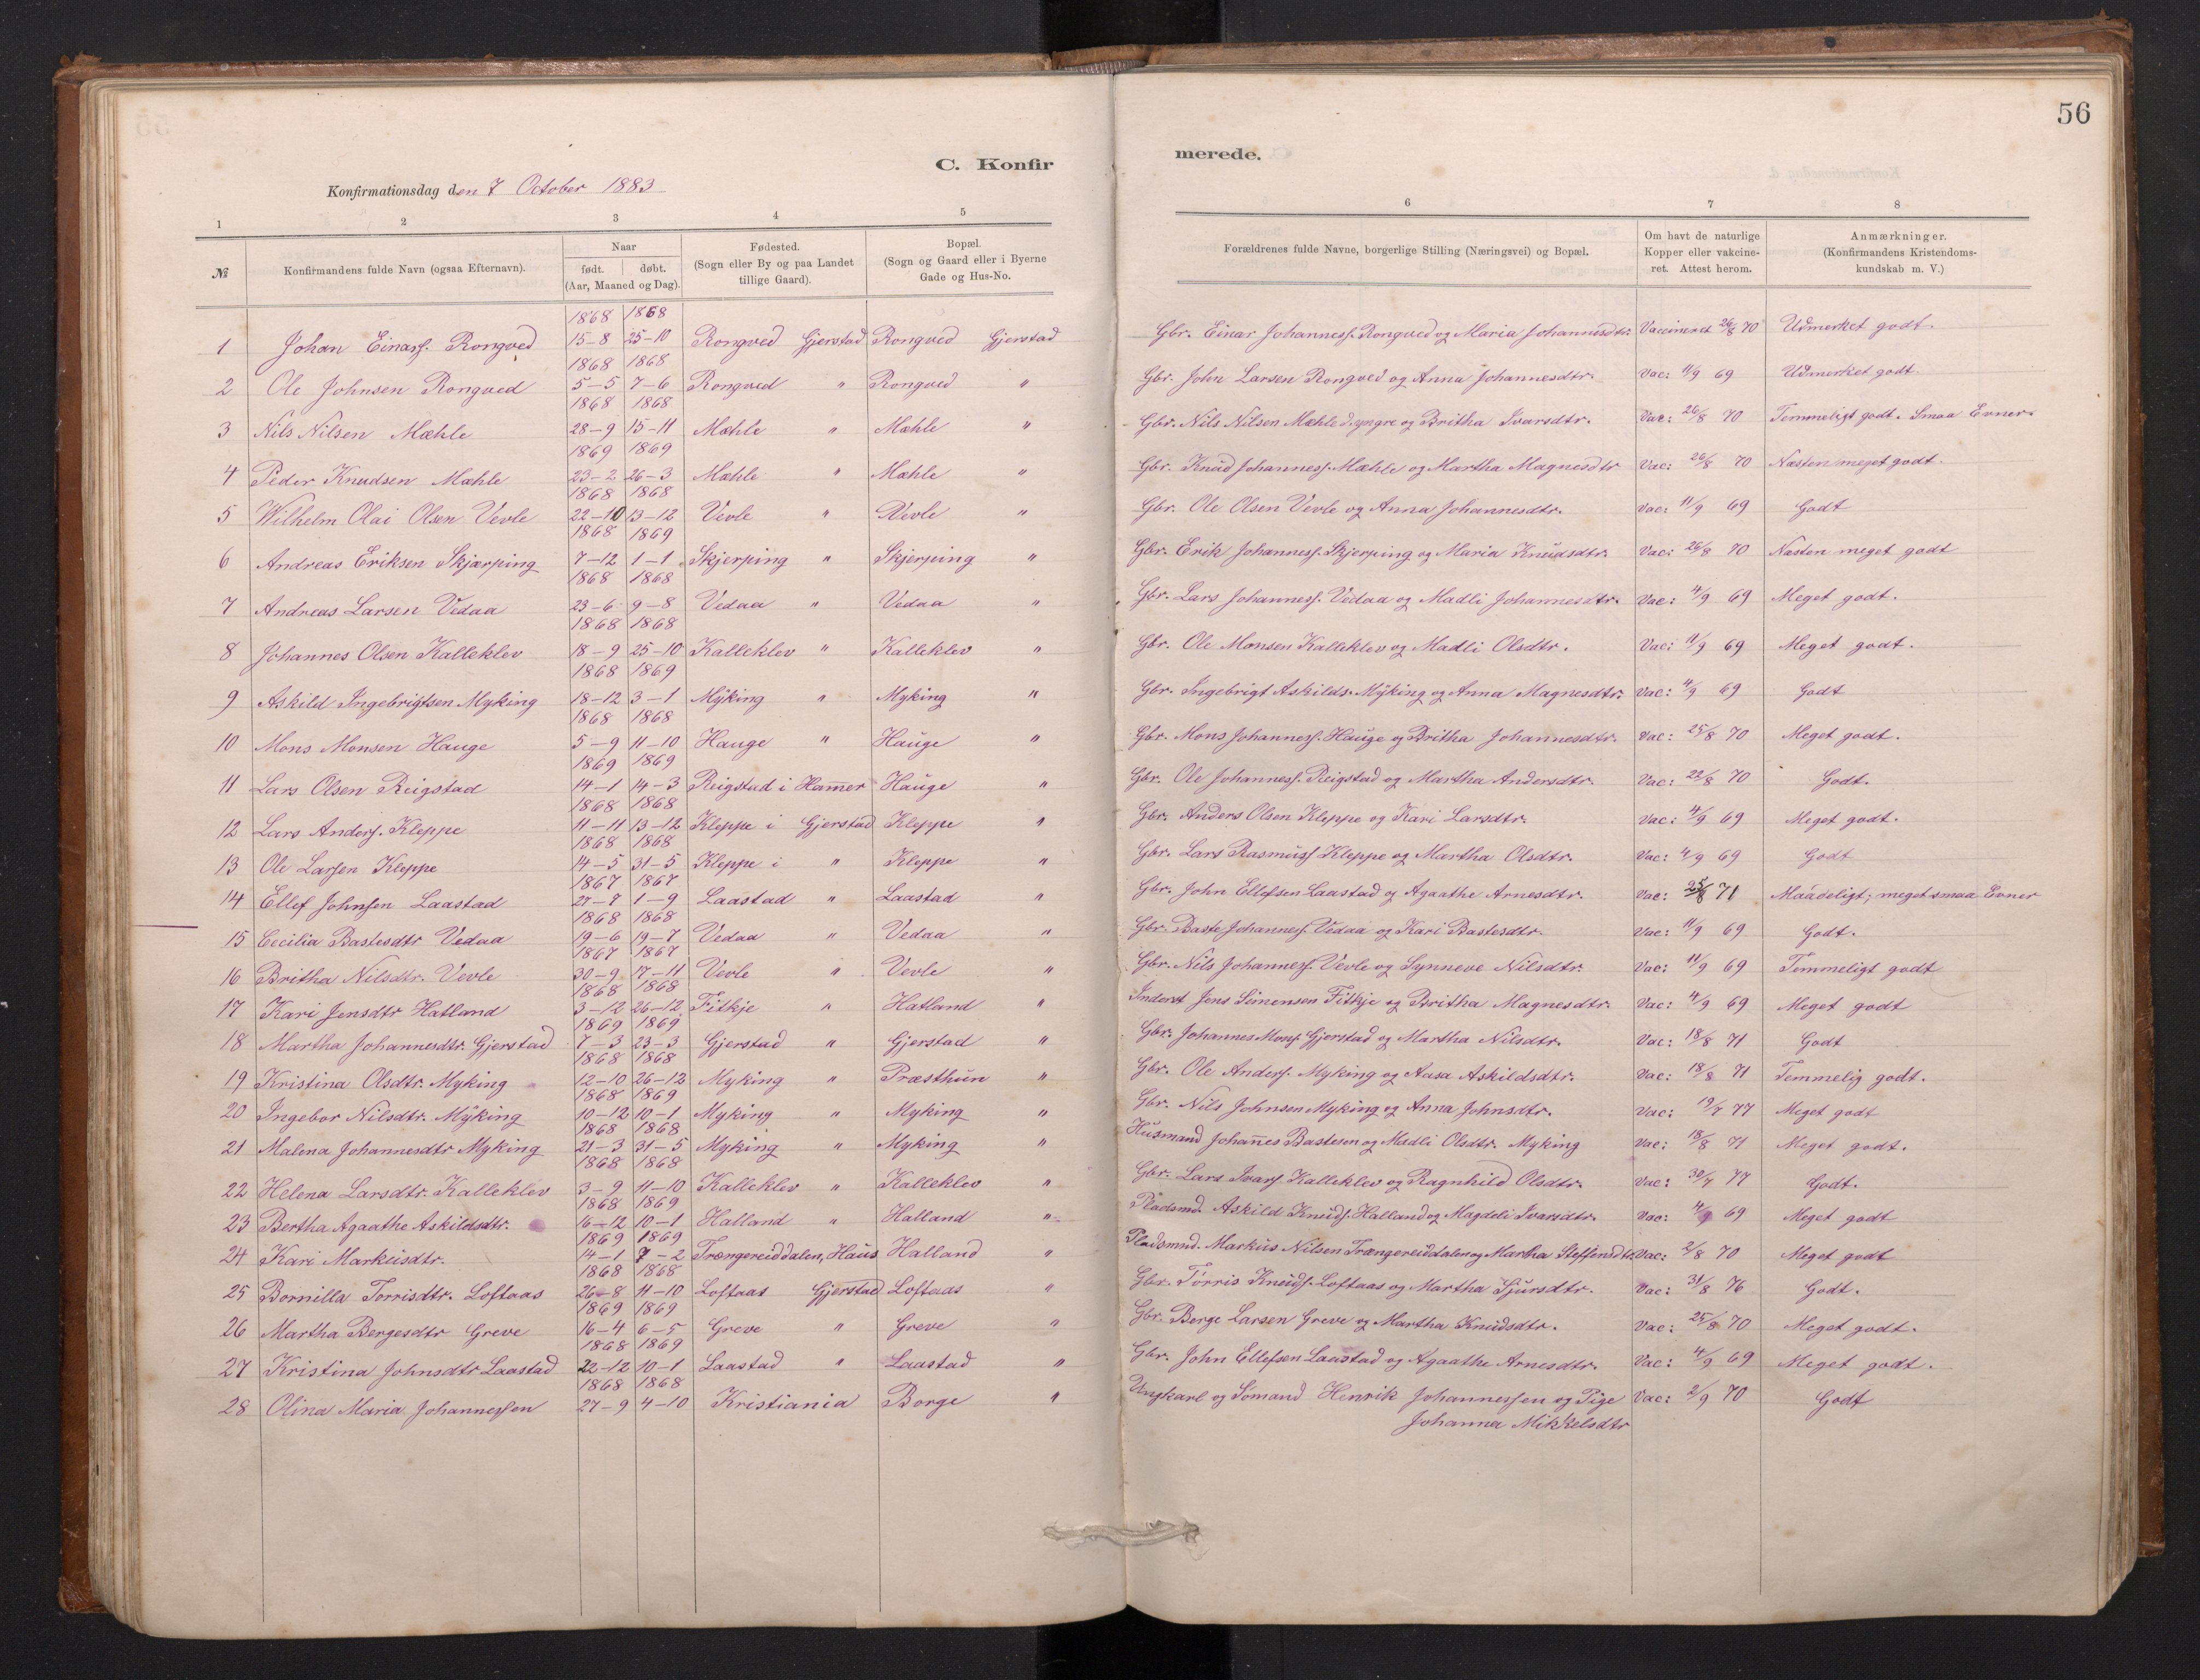 56
C. Konfir merede.
Konfirmationsdag den 7 October 1883
1 2 3 4 5 6 7 8
№ | Konfirmandens fulde Navn (ogsaa Efternavn). | Naar født. døbt. (Aar, Maaned og Dag). | Fødested. (Sogn eller By og paa Landet tillige Gaard). | Bopæl. (Sogn og Gaard eller i Byerne Gade og Hus-No. | Forældrenes fulde Navne, borgerlige Stilling (Næringsvei) og Bopæl. | Om havt de naturlige Kopper eller vakcineret. Attest herom. | Anmærkninger. (Konfirmandens Kristendomskundskab m. V.)
1 Johan Einarss. Rongved | 1868 15-8 | 1868 25-10 | Rongved Gjerstad | Rongved Gjerstad | Gbr. Einar Johanness. Rongved og Maria Johannesdtr. | Vaccineret 26/8 70 | Udmerket godt.
2 Ole Johnsen Rongved | 1868 5-5 | 1868 7-6 | Rongved " | Rongved " | Gbr. John Larsen Rongved og Anna Johannesdtr. | Vac: 11/9 69 | Udmerket godt.
3 Nils Nilsen Mæhle | 1868 28-9 | 1868 15-11 | Mæhle " | Mæhle " | Gbr. Nils Nilsen Mæhle d. yngre og Britha Ivarsdtr. | Vac: 26/8 70 | Temmeligt godt. Smaa Evner.
4 Peder Knudsen Mæhle | 1869 23-2 | 1869 26-3 | Mæhle " | Mæhle " | Gbr. Knud Johanness. Mæhle og Martha Magnesdtr | Vac: 26/8 70 | Næsten meget godt.
5 Wilhelm Olai Olsen Vevle | 1868 22-10 | 1868 13-12 | Vevle " | Vevle " | Gbr. Ole Olsen Vevle og Anna Johannesdtr. | Vac: 11/9 69 | Godt
6 Andreas Eriksen Skjærping | 1868 7-12 | 1869 1-1 | Skjerping " | Skjerping " | Gbr. Erik Johanness. Skjerping og Maria Knudsdtr. | Vac: 26/8 70 | Næsten meget godt
7 Andreas Larsen Vedaa | 1868 23-6 | 1868 9-8 | Vedaa " | Vedaa " | Gbr. Lars Johanness. Vedaa og Madli Johannesdtr. | Vac: 4/9 69 | Meget godt.
8 Johannes Olsen Kalleklev | 1868 18-9 | 1868 25-10 | Kalleklev " | Kalleklev " | Gbr. Ole Monsen Kalleklev og Madli Olsdtr. | Vac: 11/9 69 | Meget godt.
9 Askild Ingebrigtsen Myking | 1868 18-12 | 1869 3-1 | Myking " | Myking " | Gbr. Ingebrigt Askilds. Myking og Anna Magnesdtr. | Vac: 4/9 69 | Godt
10 Mons Monsen Hauge | 1868 5-9 | 1868 11-10 | Hauge " | Hauge " | Gbr. Mons Johanness. Hauge og Britha Johannesdtr. | Vac: 25/8 70 | Meget godt.
11 Lars Olsen Reigstad | 1869 14-1 | 1869 14-3 | Reigstad i Hamer | Hauge " | Gbr. Ole Johanness. Reigstad og Martha Andersdtr. | Vac: 22/8 70 | Godt.
12 Lars Anders. Kleppe | 1868 11-11 | 1868 13-12 | Kleppe i Gjerstad | Kleppe " | Gbr. Anders Olsen Kleppe og Kari Larsdtr. | Vac: 4/9 69 | Meget godt.
13 Ole Larsen Kleppe | 1868 14-5 | 1868 31-5 | Kleppe i " | Kleppe " | Gbr. Lars Rasmuss Kleppe og Martha Olsdtr. | Vac: 4/9 69 | Godt
14 Ellef Johnsen Laastad | 1867 27-7 | 1867 1-9 | Laastad " | Laastad " | Gbr. John Ellefsen Laastad og Agaathe Arnesdtr. | Vac: 71 | Maadeligt; meget smaa Evner
15 Cecilia Bastesdtr Vedaa | 1868 19-6 | 1868 19-7 | Vedaa " | Vedaa " | Gbr. Baste Johanness. Vedaa og Kari Bastesdtr. | Vac: 11/9 69 | Godt.
16 Britha Nilsdtr. Vevle | 1867 30-9 | 1867 17-11 | Vevle " | Vevle " | Gbr. Nils Johanness. Vevle og Synneve Nilsdtr. | Vac: 11/9 69 | Temmeligt godt
17 Kari Jensdtr Hatland | 1868 3-12 | 1868 26-12 | Fitkje " | Hatland " | Inderst Jens Simensen Fitkje og Britha Magnesdtr. | Vac: 4/9 69 | Meget godt
18 Martha Johannesdtr. Gjerstad | 1869 7-3 | 1869 23-3 | Gjerstad " | Gjerstad " | Gbr. Johannes Mons. Gjerstad og Martha Nilsdtr. | Vac: 18/8 71 | Godt
19 Kristina Olsdtr. Myking | 1868 12-10 | 1868 26-12 | Myking " | Præsthun " | Gbr. Ole Anders. Myking og Aasa Askildsdtr. | Vac: 18/8 71 | Temmelig godt.
20 Ingebor Nilsdtr. Myking | 1868 10-12 | 1869 10-1 | Myking " | Myking " | Gbr. Nils Johnsen Myking og Anna Johnsdtr. | Vac: 19/7 77 | Meget godt
21 Malena Johannesdtr Myking | 1868 21-3 | 1868 31-5 | Myking " | Myking " | Husmand Johanes Bastesen og Madli Olsdtr. Myking | Vac: 18/8 71 | Meget godt.
22 Helena Larsdtr. Kalleklev | 1868 3-9 | 1868 11-10 | Kalleklev " | Kalleklev " | Gbr. Lars Ivars. Kalleklev og Ragnhild Olsdtr. | Vac: 30/7 77 | Godt.
23 Bertha Agaathe Askildsdtr. | 1868 16-12 | 1869 10-1 | Halland " | Halland " | Pladsmd. Askild Knuds. Halland og Magdeli Ivarsdtr. | Vac: 4/9 69 | Meget godt
24 Kari Markusdtr. | 1869 14-1 | 1869 7-2 | Trængereiddalen, Haus | Halland " | Pladsmnd. Markus Nilsen Trængereiddalen og Martha Steffensdtr | Vac: 2/8 70 | Meget godt
25 Bornilla Torrisdtr. Loftaas | 1868 26-8 | 1868 11-10 | Loftaas Gjerstad | Loftaas " | Gbr. Tørris Knuds. Loftaas og Martha Sjursdtr. | Vac: 31/8 76 | Godt.
26 Martha Bergesdtr Greve | 1869 16-4 | 1869 6-5 | Greve " | Greve " | Gbr. Berge Larsen Greve og Martha Knudsdtr. | Vac: 25/8 70 | Meget godt.
27 Kristina Johnsdtr Laastad | 1868 22-12 | 1869 10-1 | Laastad " | Laastad " | Gbr. John Ellefsen Laastad og Agaathe Arnesdtr. | Vac: 4/9 69 | Meget godt.
28 Olina Maria Johannessen | 1868 27-9 | 1868 4-10 | Kristiania | Borge " | Ungkarl og Sømand Henrik Johannessen og Pige Johanna Mikkelsdtr | Vac: 2/9 70 | Godt